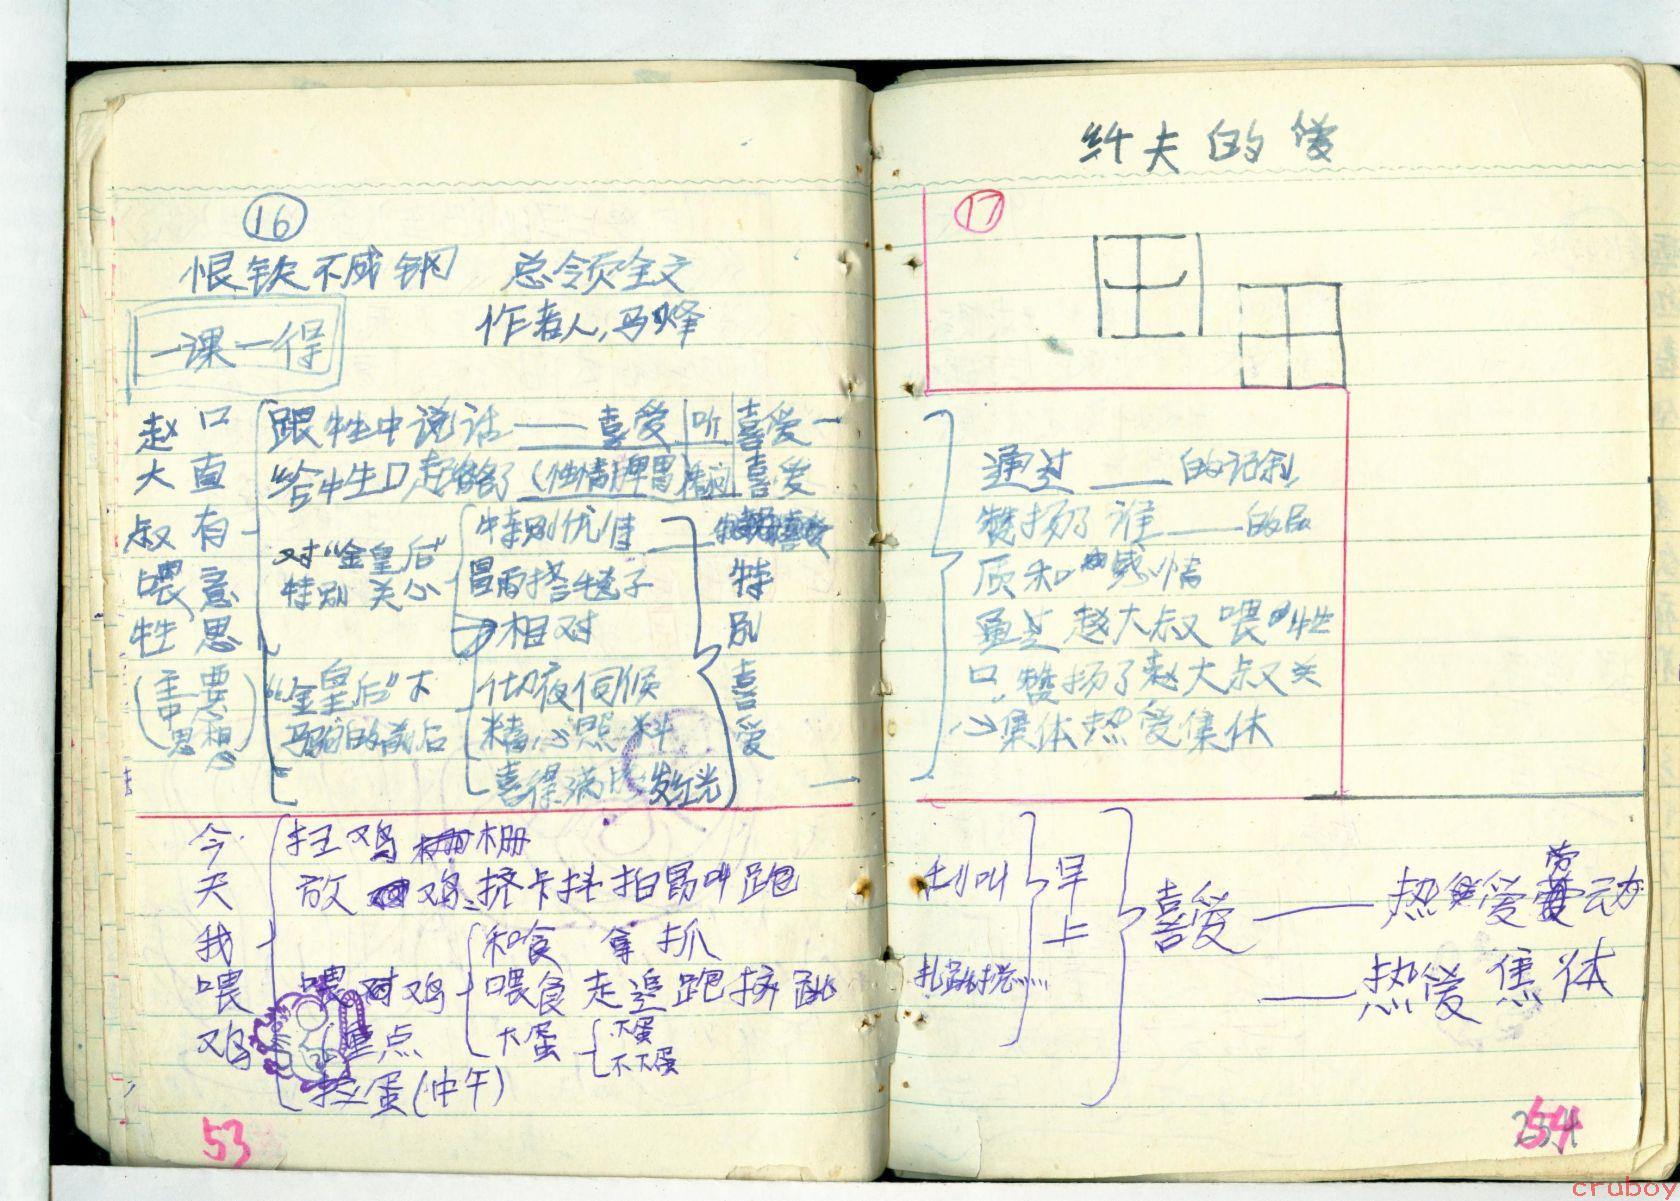 16
恨铁不成钢 总领全文
作者人,马烽
一课一得
赵大叔喂牲口直有意思
(主要中思想)
跟牲口说话——喜爱 听 喜爱
给牲口起绰号(性情脾胃) 喜爱
对"金皇后"特别关心
特别优佳
冒雨搭毯子
相对
"金皇后"下马驹的前后
日夜伺候
精心照料
喜得满脸发红光
特别喜爱
今天我喂鸡
扫鸡栅
放鸡:挤卡 拍 叫 跑
喂鸡
重点
和食 拿 抓
喂食 走 追 跑 挤 跳
大蛋
下蛋
不下蛋
捡蛋(中午)
53
纤夫的爱
17
通过——的记叙,
赞扬了谁——的品
质和感情
通过赵大叔喂牲
口,赞扬了赵大叔关
心集体热爱集体
早上
喜爱——热爱劳动
——热爱集体
54
cruboy